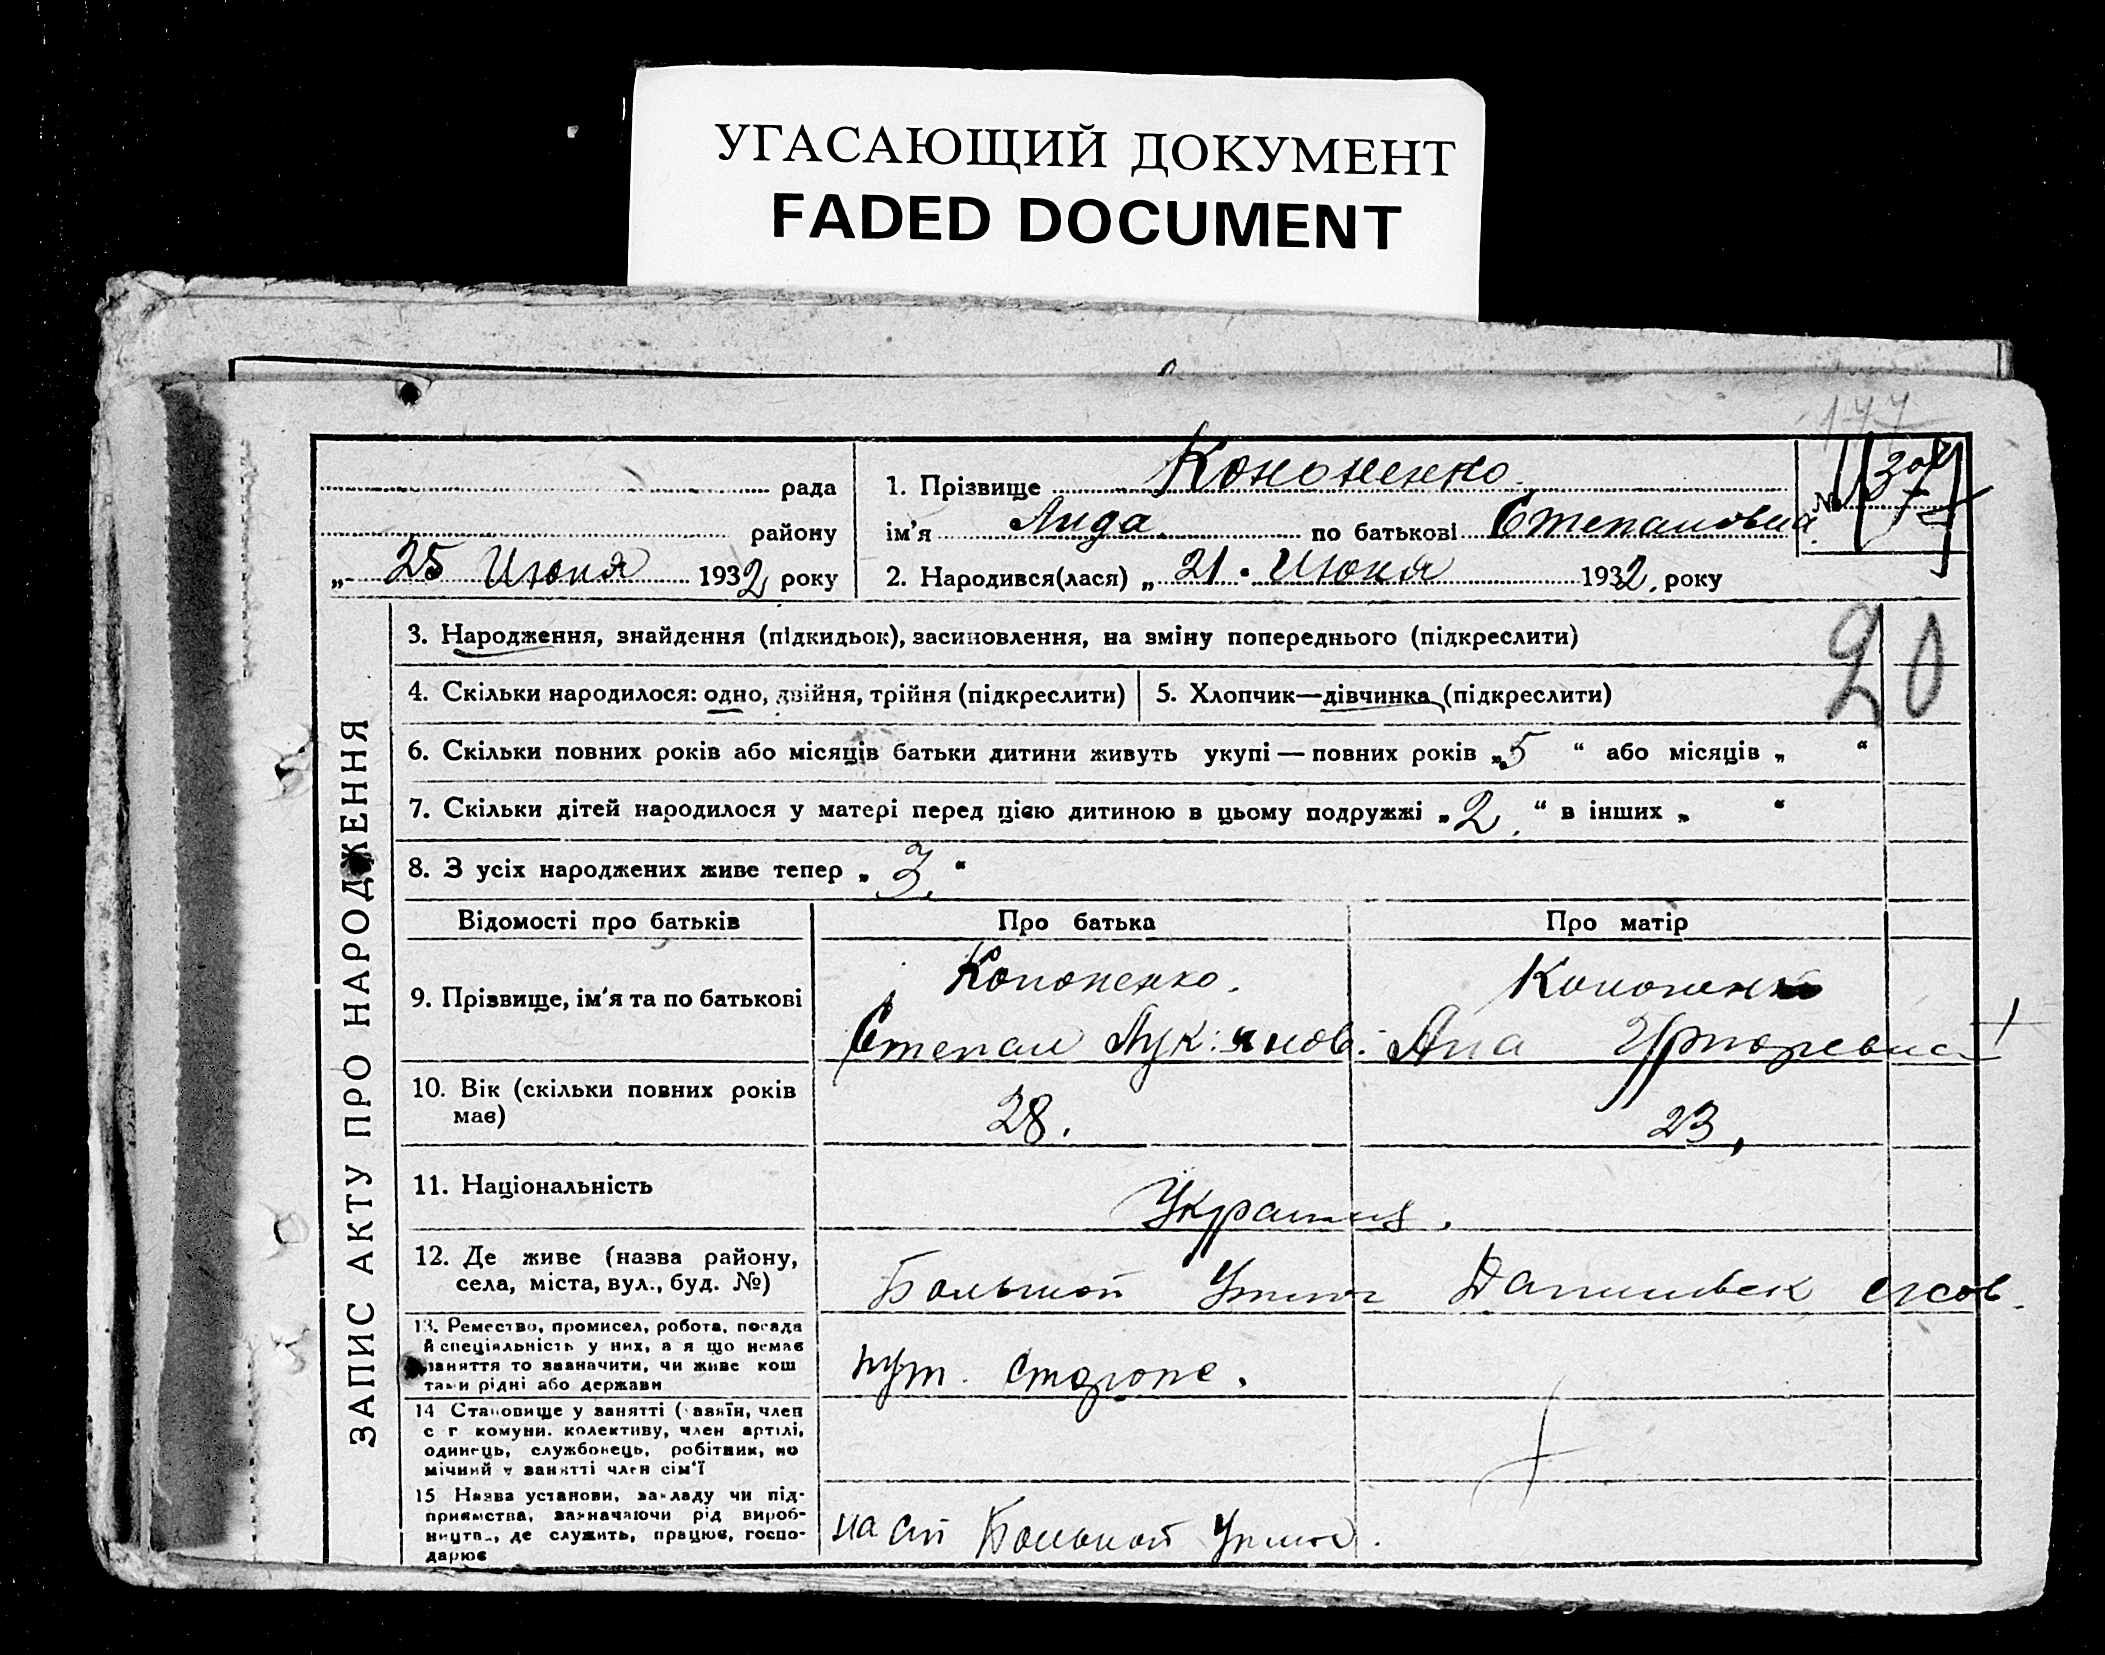 УГАСАЮЩИЙ ДОКУМЕНТ
FADED DOCUMENT
177
рада
району
„ 25 Июня 1932 року
1. Прізвище Кононенко
ім'я Лида по батькові Степановна
2. Народився(лася) „ 21 Июня 1932 року
№
20
ЗАПИС АКТУ ПРО НАРОДЖЕННЯ
3. Народження, знайдення (підкидьок), засиновлення, на зміну попереднього (підкреслити)
4. Скільки народилося: одно, двійня, трійня (підкреслити)
5. Хлопчик—дівчинка (підкреслити)
6. Скільки повних років або місяців батьки дитини живуть укупі — повних років „ 5 “ або місяців „ “
7. Скільки дітей народилося у матері перед цією дитиною в цьому подружжі „ 2 “ в інших „ “
8. З усіх народжених живе тепер „ 3 “
Відомості про батьків Про батька Про матір
9. Прізвище, ім'я та по батькові
Кононенко. Кононенко
Степан Лук:янов. Ана
10. Вік (скільки повних років
має)
28. 23,
11. Національність
12. Де живе (назва району,
села, міста, вул., буд. №)
Большой
13. Ремество, промисел, робота, посада
й спеціяльність у них, а я що немає
заняття то зазначити, чи живе кош
тами рідні або держави
пут. стороне.
14 Становище у занятті (хазяїн, член
с г комуни. колективу, член артілі,
одинець, службовець, робітник, по
мічний у занятті член сім'ї
15 Назва установи, закладу чи під-
приємства, зазначаючи рід вироб-
ництв., де служить, працює, госпо-
дарює
на ст Большой